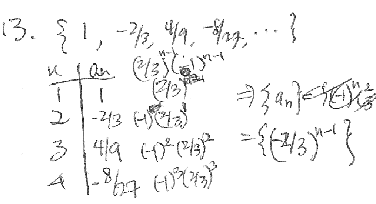 13. { 1, -2/3, 4/9, -8/27, ... }
n | an (2/3)^n-1 (-1)^n-1
1 | 1 (2/3)
2 | -2/3 (-1)(2/3)
3 | 4/9 (-1)^2 (2/3)^2
4 | -8/27 (-1)^3 (2/3)^3
⇒ {an}
= {(-2/3)^n-1}